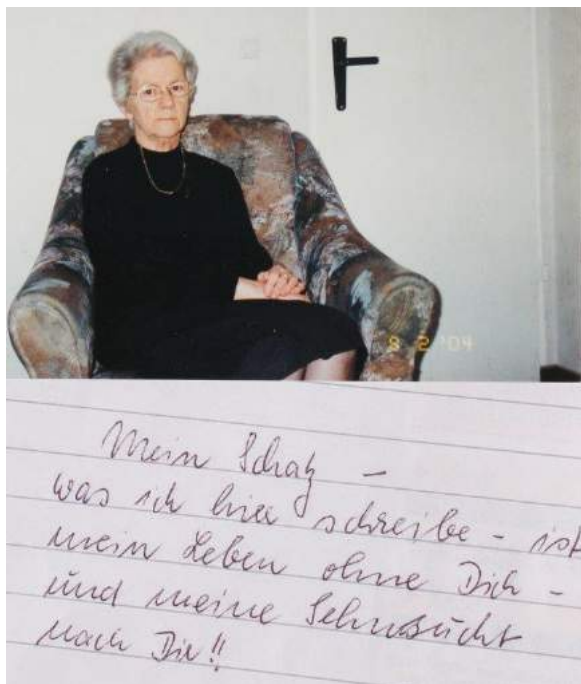 8 2 '04
Mein Schatz –
was ich hier schreibe – ist
mein Leben ohne Dich –
und meine Sehnsucht
nach Dir!!